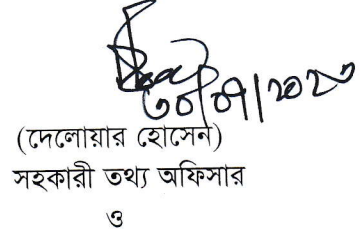 ৩০/০৭/২০২৩
(দেলোয়ার হোসেন)
সহকারী তথ্য অফিসার
ও